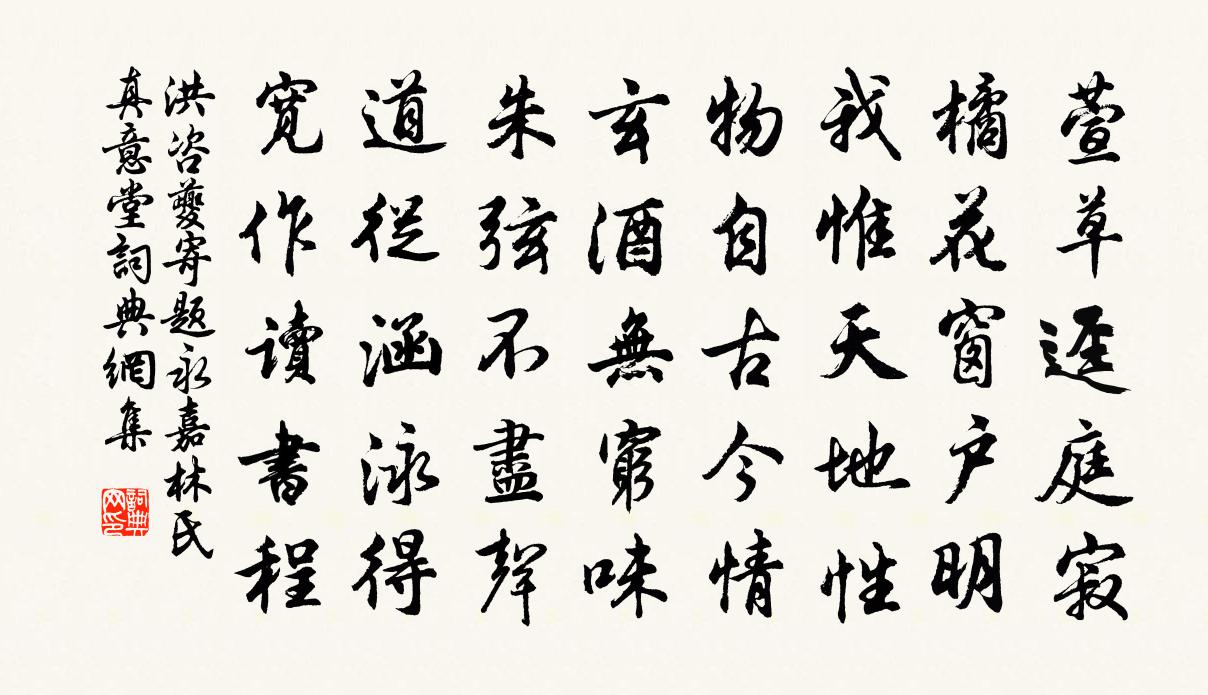 萱草逕庭寂
橘花窗户明
我惟天地性
物自古今情
玄酒無窮味
朱弦不盡聲
道從涵泳得
寬作讀書程
洪咨夔寄題永嘉林氏
真意堂詞典網集
詞典网印